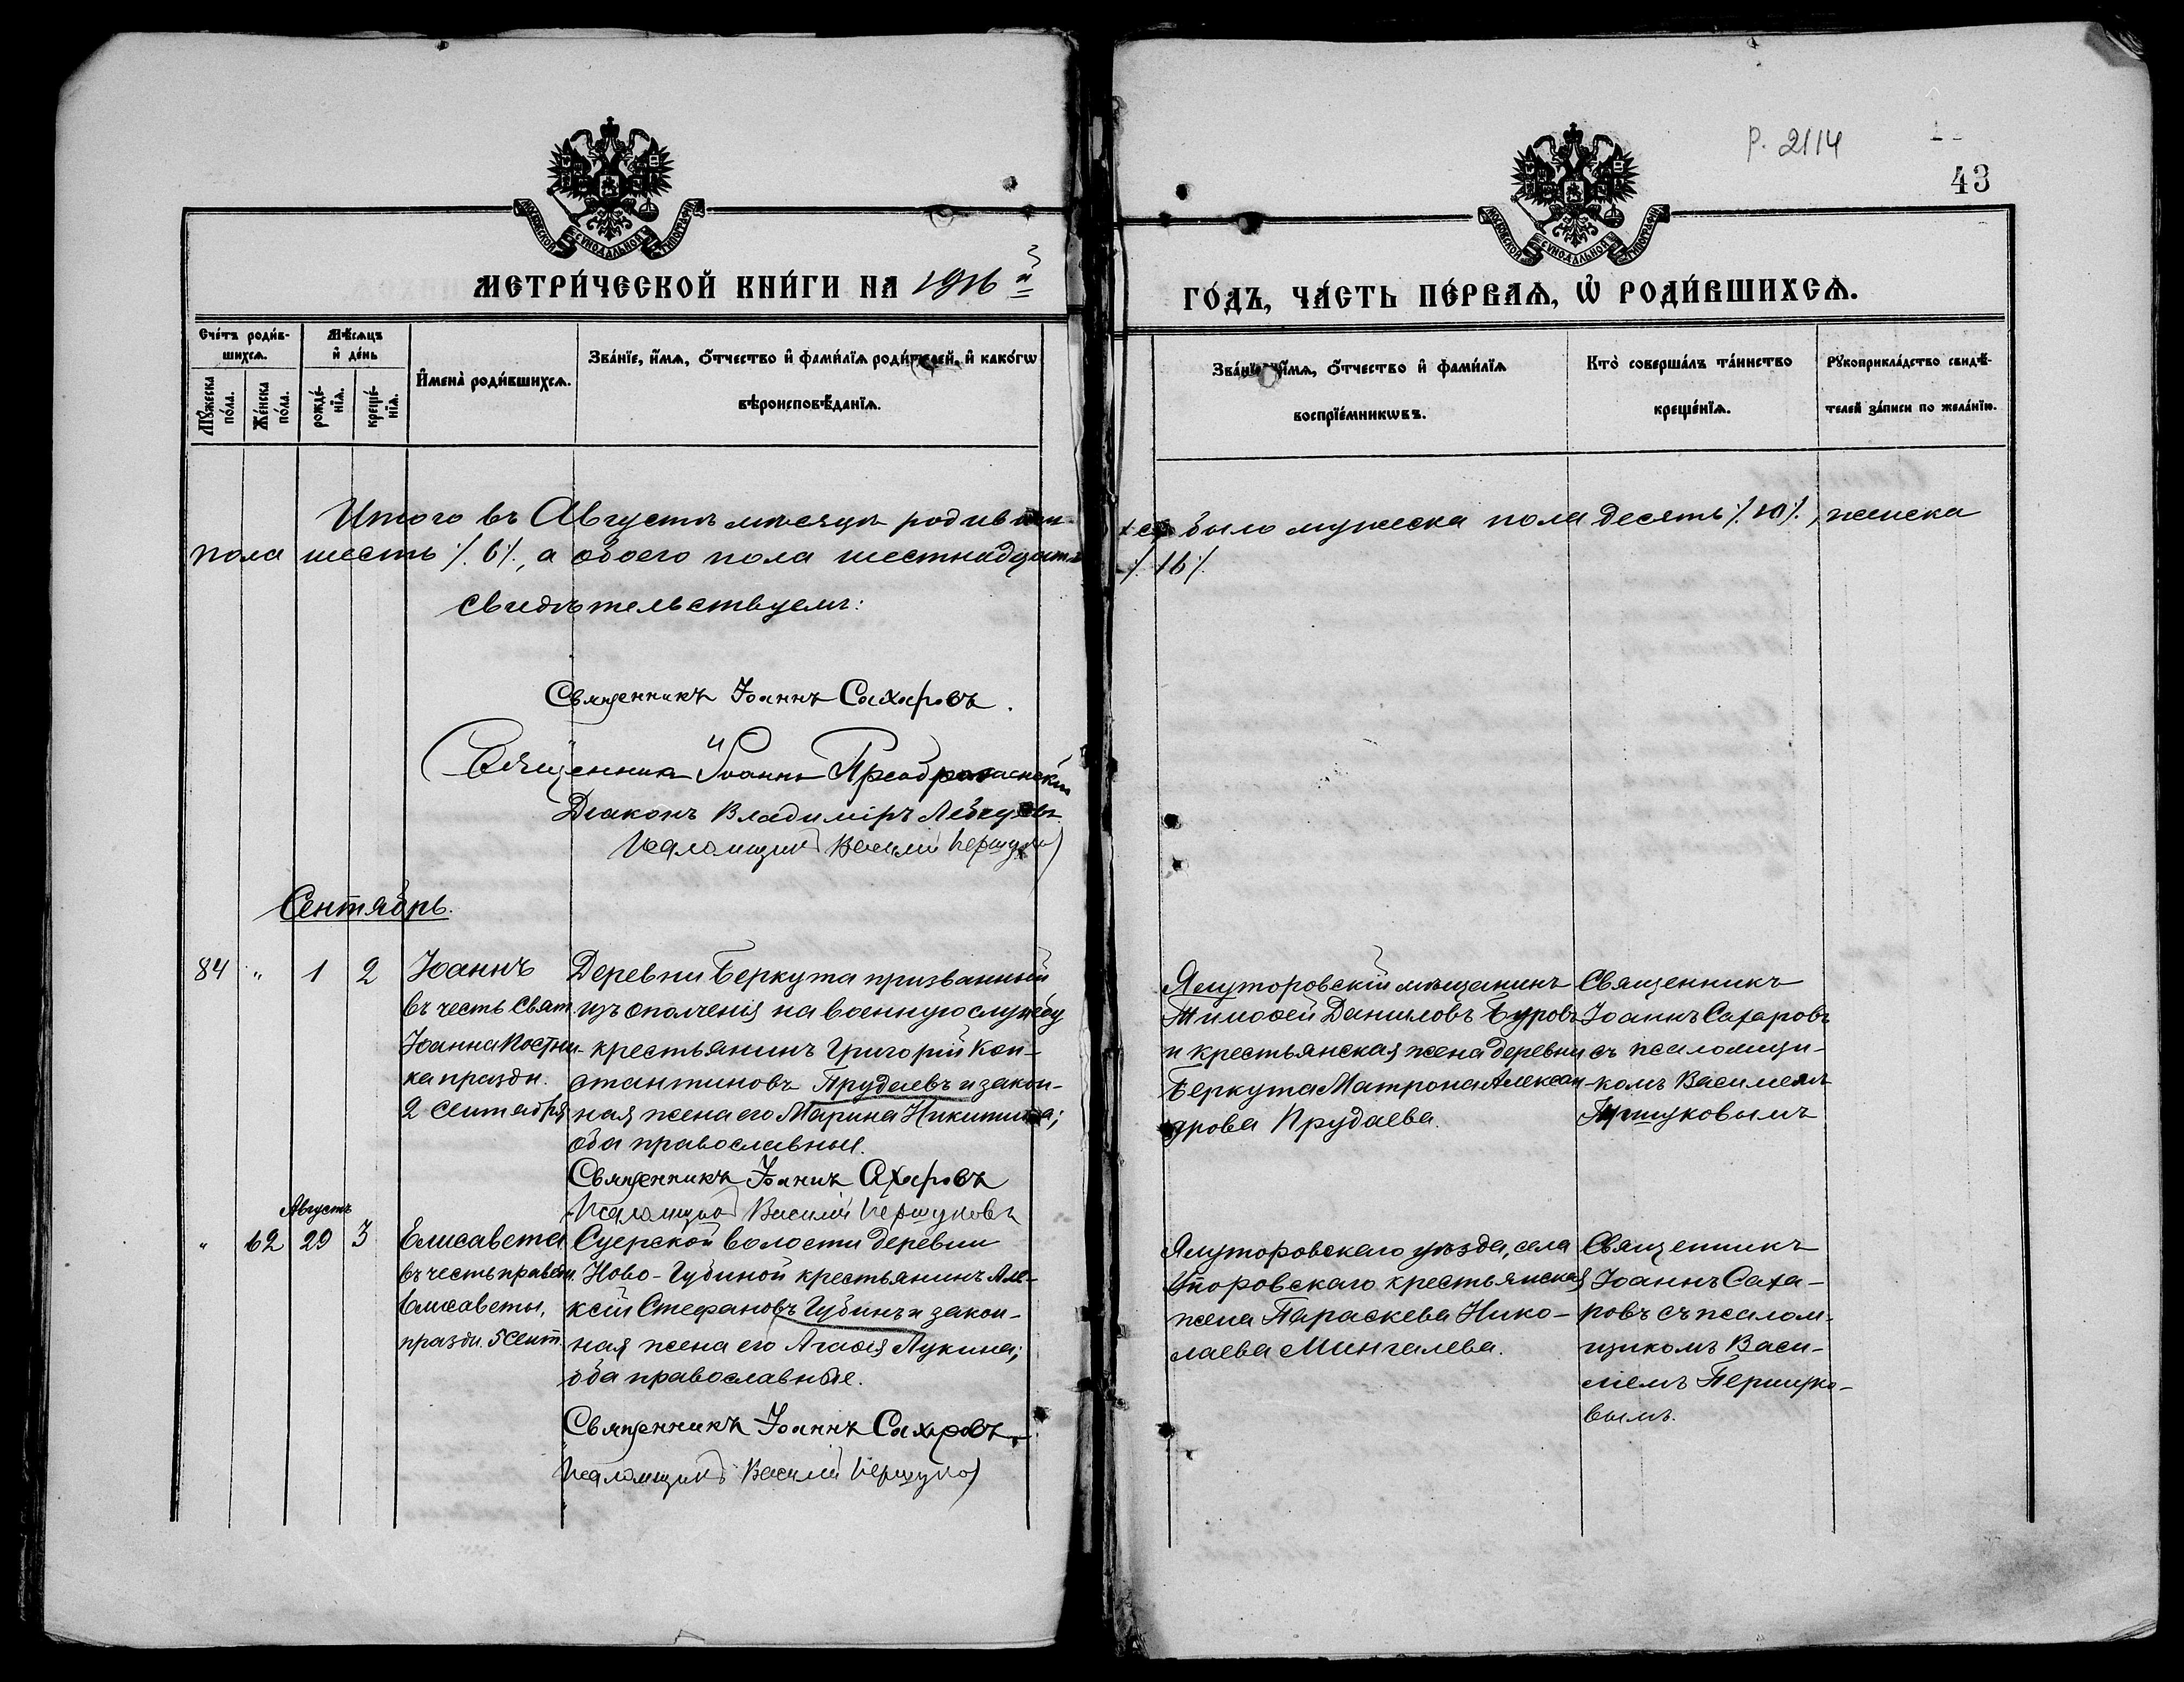 р. 2114
43
МОСКОВСКОЙ СѴНОДАЛЬНОЙ ТИПОГРАФІИ
МОСКОВСКОЙ СѴНОДАЛЬНОЙ ТИПОГРАФІИ
МЕТРИ́ЧЕСКОЙ КНИ́ГИ НА 1916 й
ГО́ДЪ, ЧА́СТЬ ПЕ́РВАѦ, Ѡ҆ РОДИ́ВШИХСѦ.
Сче́тъ роди́в-
шихсѧ.
Мꙋ́жеска по́ла.
Же́нска по́ла.
Мѣ́сѧцъ
и҆ де́нь
рожде́-
нїѧ.
креще́-
нїѧ.
И҆мена̀ роди́вшихсѧ.
Зва́нїе, и҆́мѧ, ѻ҆́тчество и҆ фами́лїѧ роди́телей, и҆ како́гѡ
вѣроисповѣ́данїѧ.
Зва́нїе, и҆́мѧ, ѻ҆́тчество и҆ фами́лїѧ
воспрїе́мникѡвъ.
Кто̀ соверша́лъ та́инство
креще́нїѧ.
Рꙋкоприкла́дство свидѣ́-
телей за́писи по жела́нїю.
Итого въ Августѣ мѣсяцѣ родивши-
хся было мужеска пола десять ⁒ 10 ⁒, женска
пола шесть ⁒ 6 ⁒, а обоего пола шестнадцать
⁒ 16 ⁒
Свидѣтельствуемъ:
Священникъ Іоаннъ Сахаровъ.
Священникъ Іоаннъ Преображенскій
Діаконъ Владиміръ
Псаломщикъ Василій Першуковъ
Сентябрь.
84 " 1 2
Іоаннъ
въ честь Свят.
Іоанна Постни-
ка праздн.
2 Сентября
Деревни Беркута призванный
изъ ополченія на военную службу
крестьянинъ Григорій Кон-
стантиновъ Прудаевъ и закон-
ная жена его Марина Никитина;
оба православные.
Священникъ Іоаннъ Сахаровъ
Псаломщикъ Василій Першуковъ
Ялуторовскій мѣщанинъ
Тимоѳей Даниловъ Буровъ
и крестьянская жена деревни
Беркута Матрона Алексан-
дрова Прудаева.
Священникъ
Іоаннъ Сахаровъ
съ псаломщи-
комъ Василіемъ
Першуковымъ
Августъ
" 62 29 3
Елисавета
въ честь праведн.
Елисаветы,
праздн. 5 Сент.
Суерской волости деревни
Ново-Губиной крестьянинъ Але-
ксій Стефановъ Губинъ и закон-
ная жена его Агаѳія Лукина;
оба православные.
Священникъ Іоаннъ Сахаровъ.
Псаломщикъ Василій Першуковъ
Ялуторовскаго уѣзда, села
Упоровскаго крестьянская
жена Параскева Нико-
лаева Мингалева.
Священникъ
Іоаннъ Саха-
ровъ съ псалом-
щикомъ Васи-
ліемъ Першуко-
вымъ.